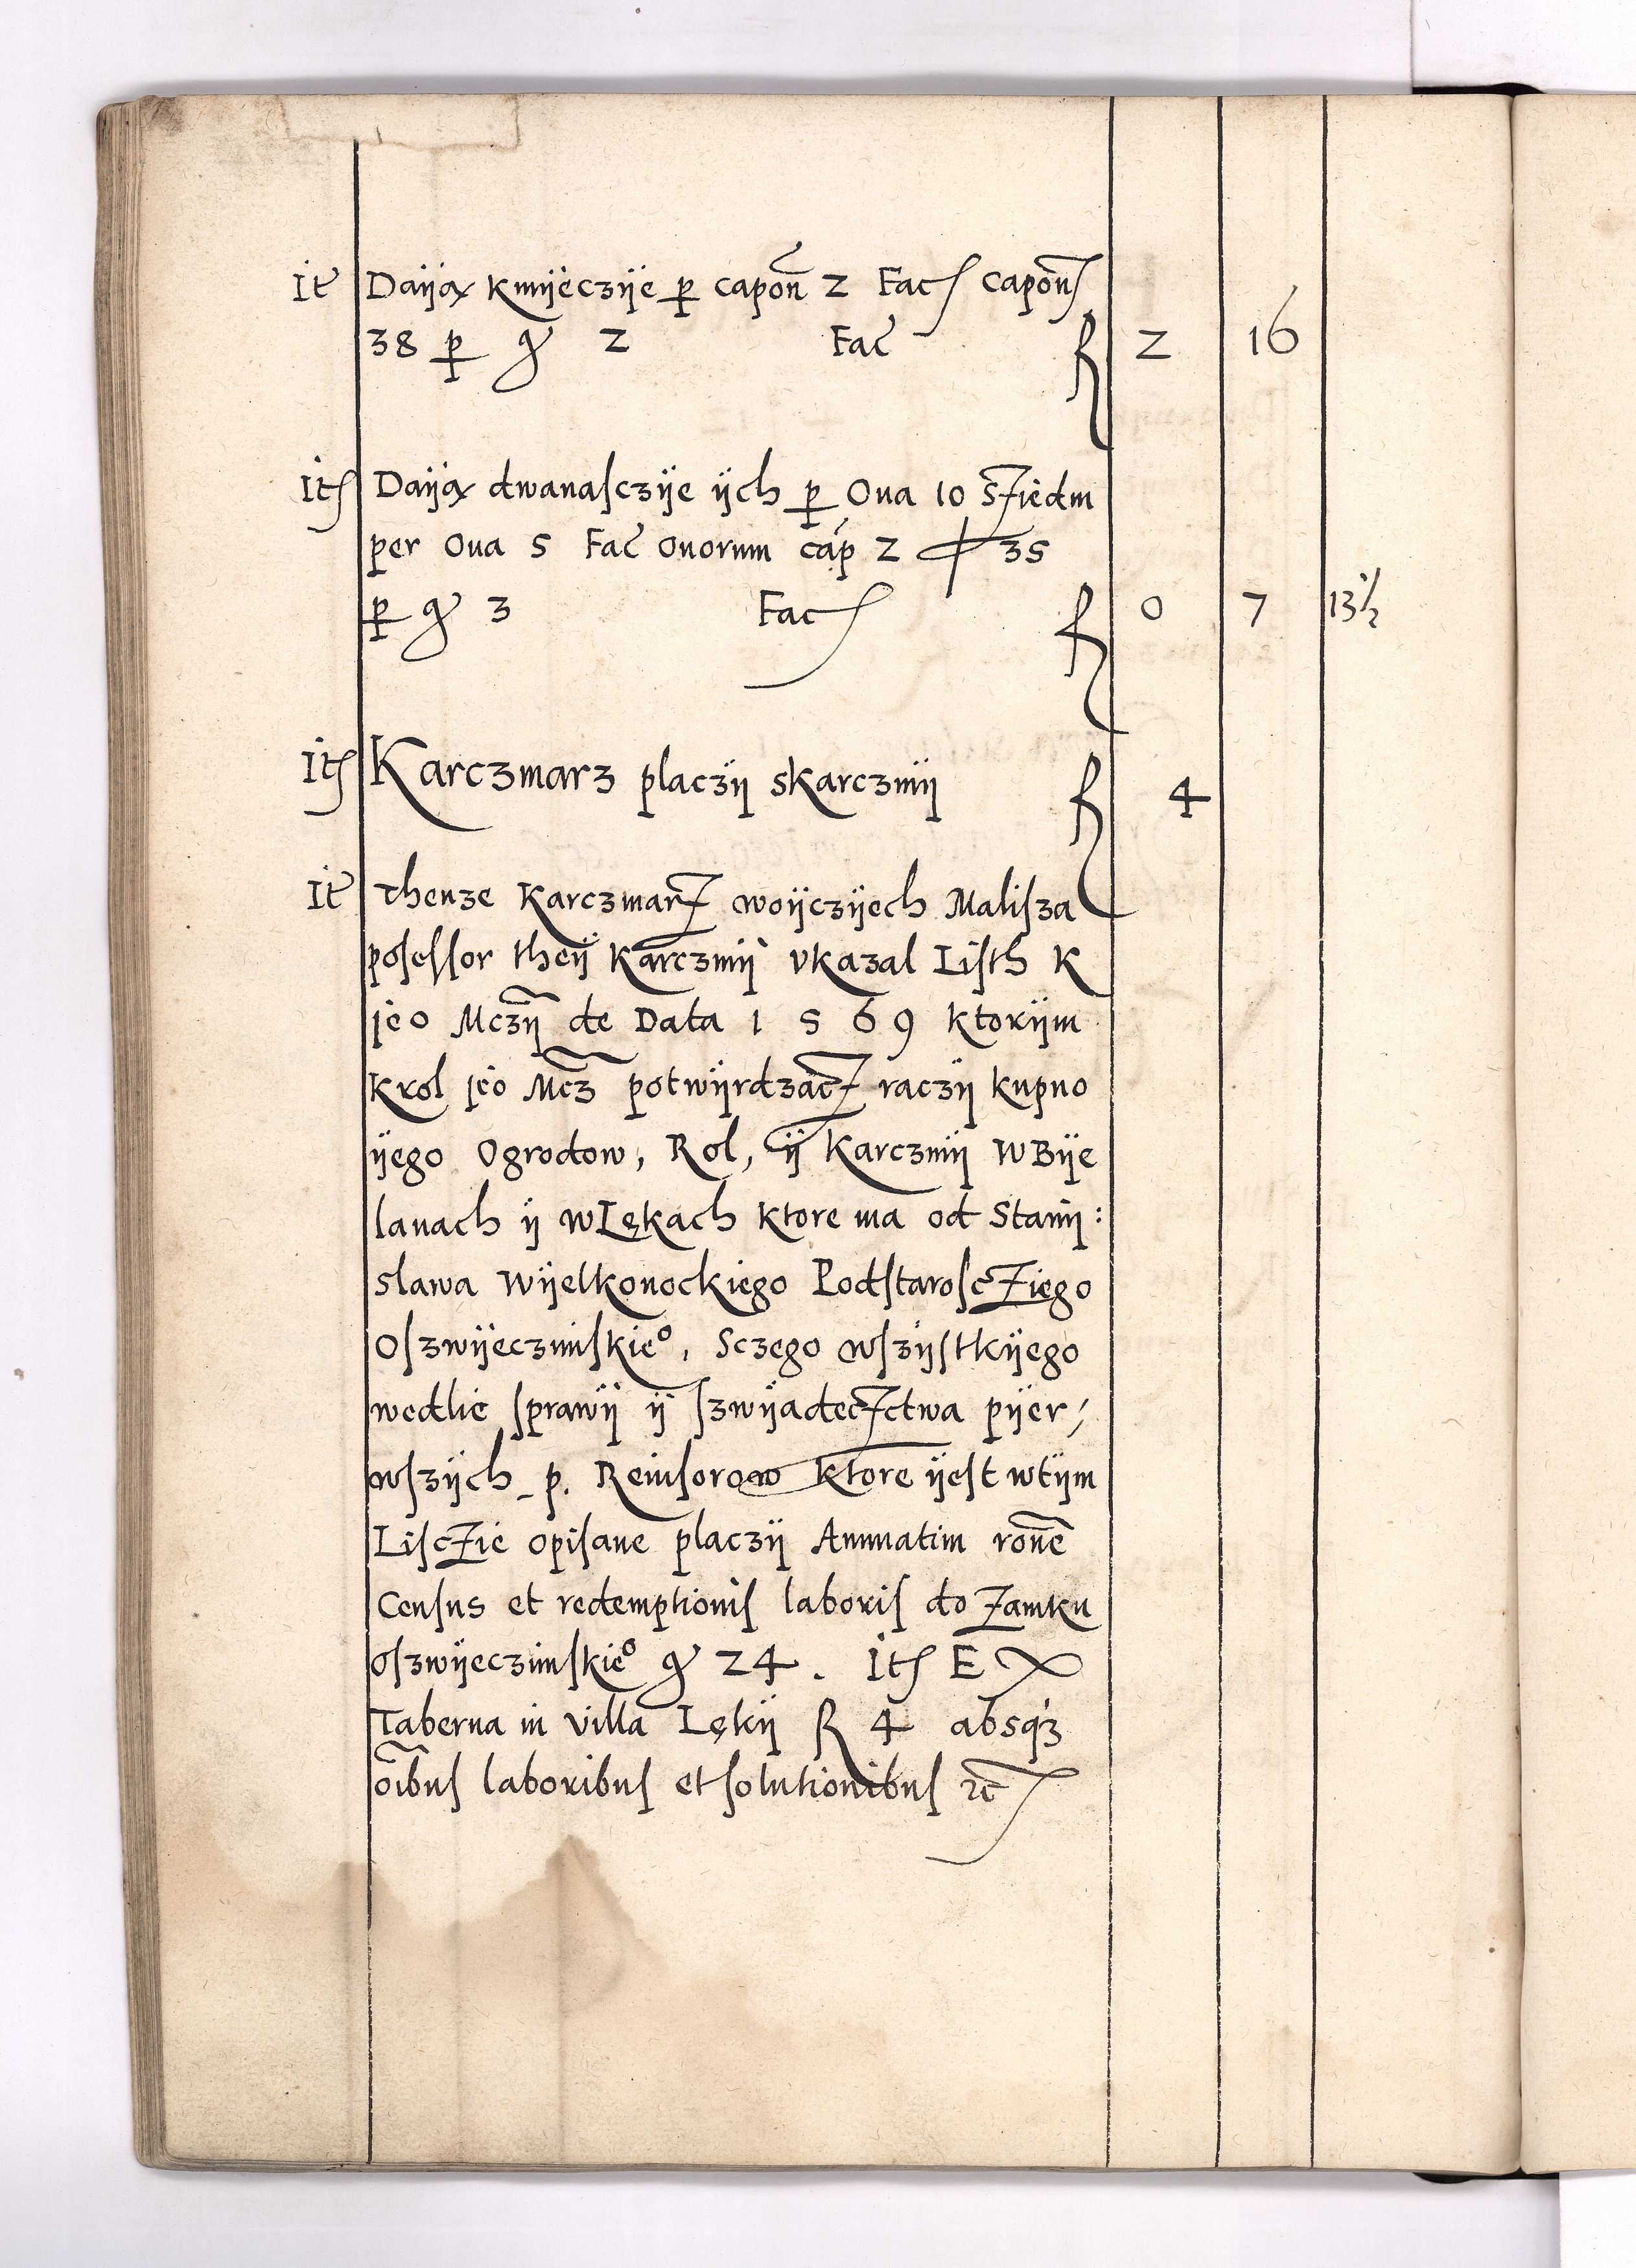 It Daÿą kmÿeczÿe p capon 2 Fac capon
38 p gr 2 Fac fl 2 16
It Daÿą dwanasczÿe ÿch p Oua 10 Siedm
per Oua 5 Fac Ouorum cap 2 ȼ 35
p gr 3 Fac fl 0 7 13½
It Karczmarz placzÿ skarczmÿ fl 4
It Thenze Karczmarz woÿczÿech Malisza
posessor theÿ Karczmÿ vkazal Listh K
jeo Mczÿ de Data 1569 ktorÿm
Krol jeo Mcz potwÿrdzacz raczÿ kupno
ÿego Ogrodow, Rol, ÿ Karczmÿ WBÿe
lanach ÿ wLękach ktore ma od Stanÿ:
slawa Wÿelkonockiego Podstaroscziego
Oszwÿeczimskieo, Sczego wszÿstkÿego
wedlie sprawÿ ÿ szwÿadecztwa pÿer/
wszÿch p. Reuisorow ktore ÿest wtÿm
Liscziè opisane placzÿ Annuatim rone
Census et redemptionis laboris do Zamku
oszwÿeczimskieo gr 24. It EX
Taberna in villa Lękÿ fl 4 absqz
oibus laboribus et solutionibus rc